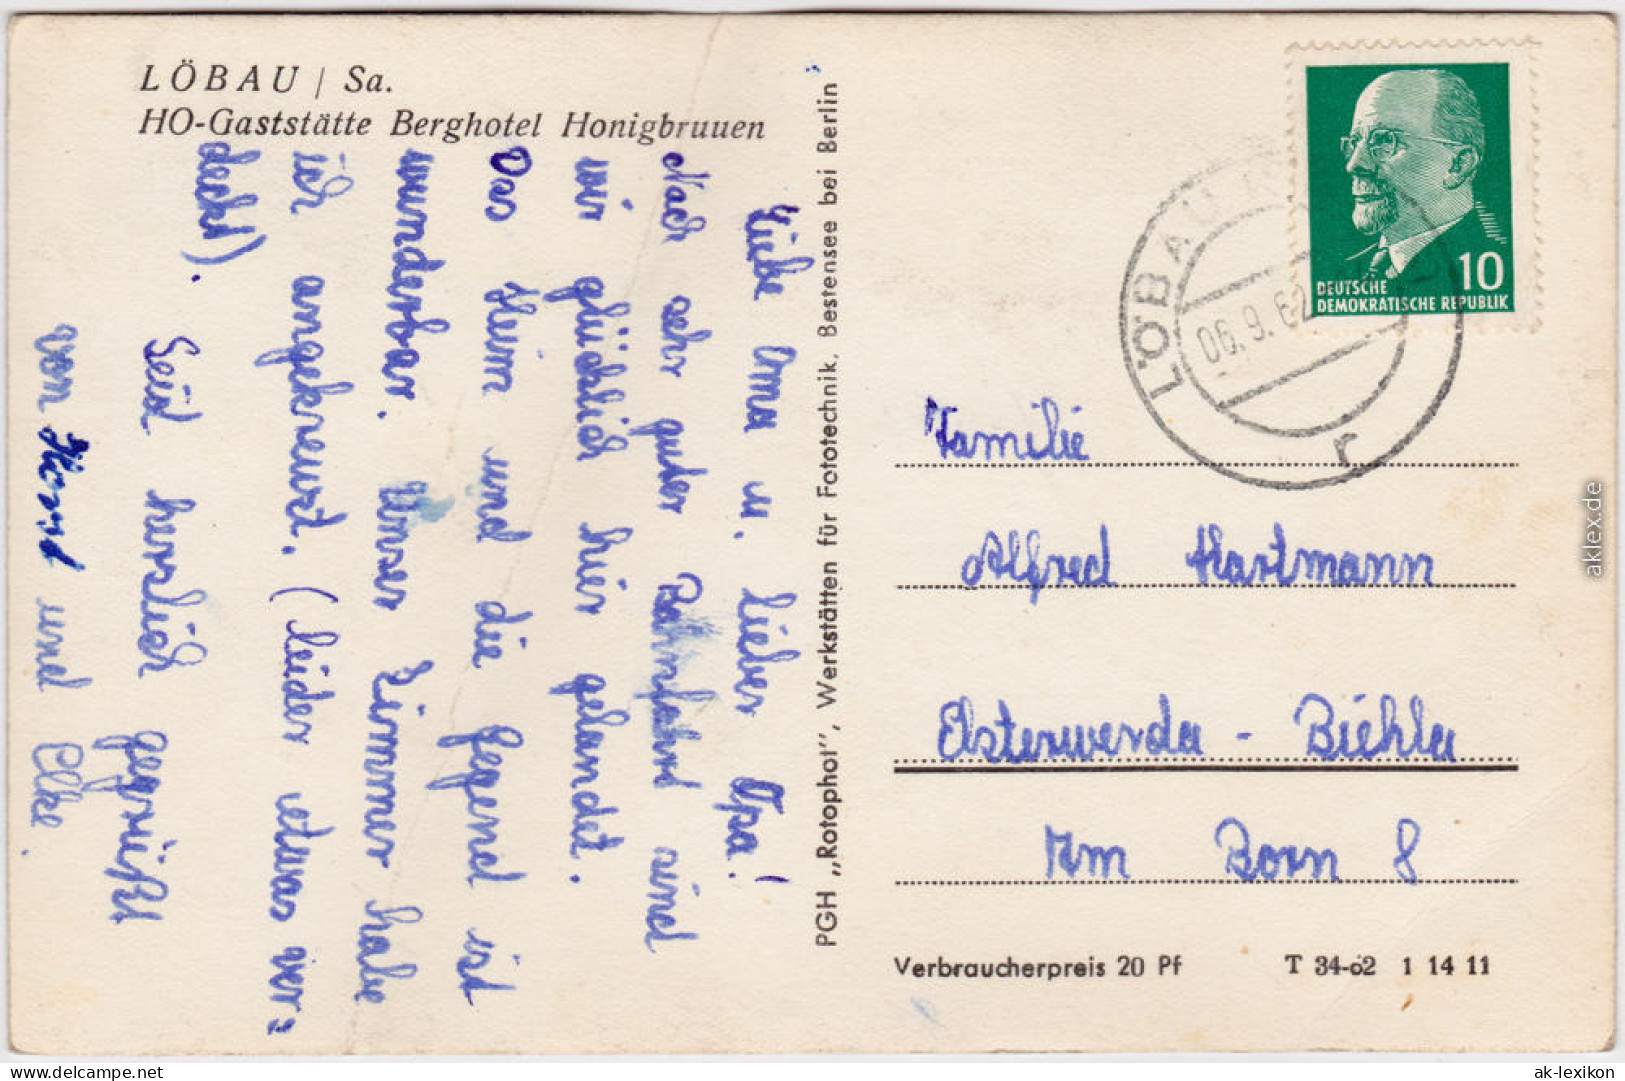 LÖBAU / Sa.
HO-Gaststätte Berghotel Honigbruuen
Liebe Oma u. lieber Opa!
Nach sehr guter Bahnfahrt sind
wir glücklich hier gelandet.
Das Heim und die Gegend ist
wunderbar. Unser Zimmer habe
ich angekreuzt. (leider etwas ver=
deckt).
Seid herzlich gegrüßt
von Horst und Elke.
PGH „Rotophot", Werkstätten für Fototechnik, Bestensee bei Berlin
DEUTSCHE
DEMOKRATISCHE REPUBLIK
10
LÖBAU
06.9.62
r
Familie
Alfred Hartmann
Elsterwerda - Biehla
Am Born 8
Verbraucherpreis 20 Pf T 34-62 1 14 11
aklex.de
delcampe.net
ak-lexikon